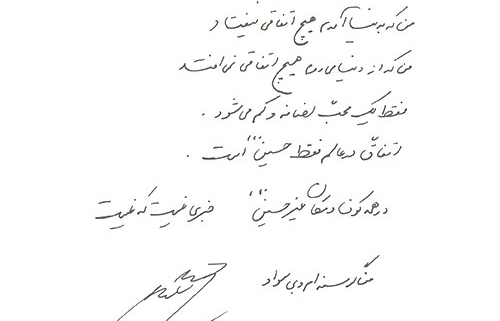 من که به دنیا آمدم هیچ اتفاقی نیفتاد
من که از دنیا می روم هیچ اتفاقی نمی افتد
فقط یک محبّ اضافه و کم می شود .
اتفاق در عالم فقط حسین است .
در همه کون و مکان غیر حسین خبری نیست که نیست
گرسنه ام و بی سواد